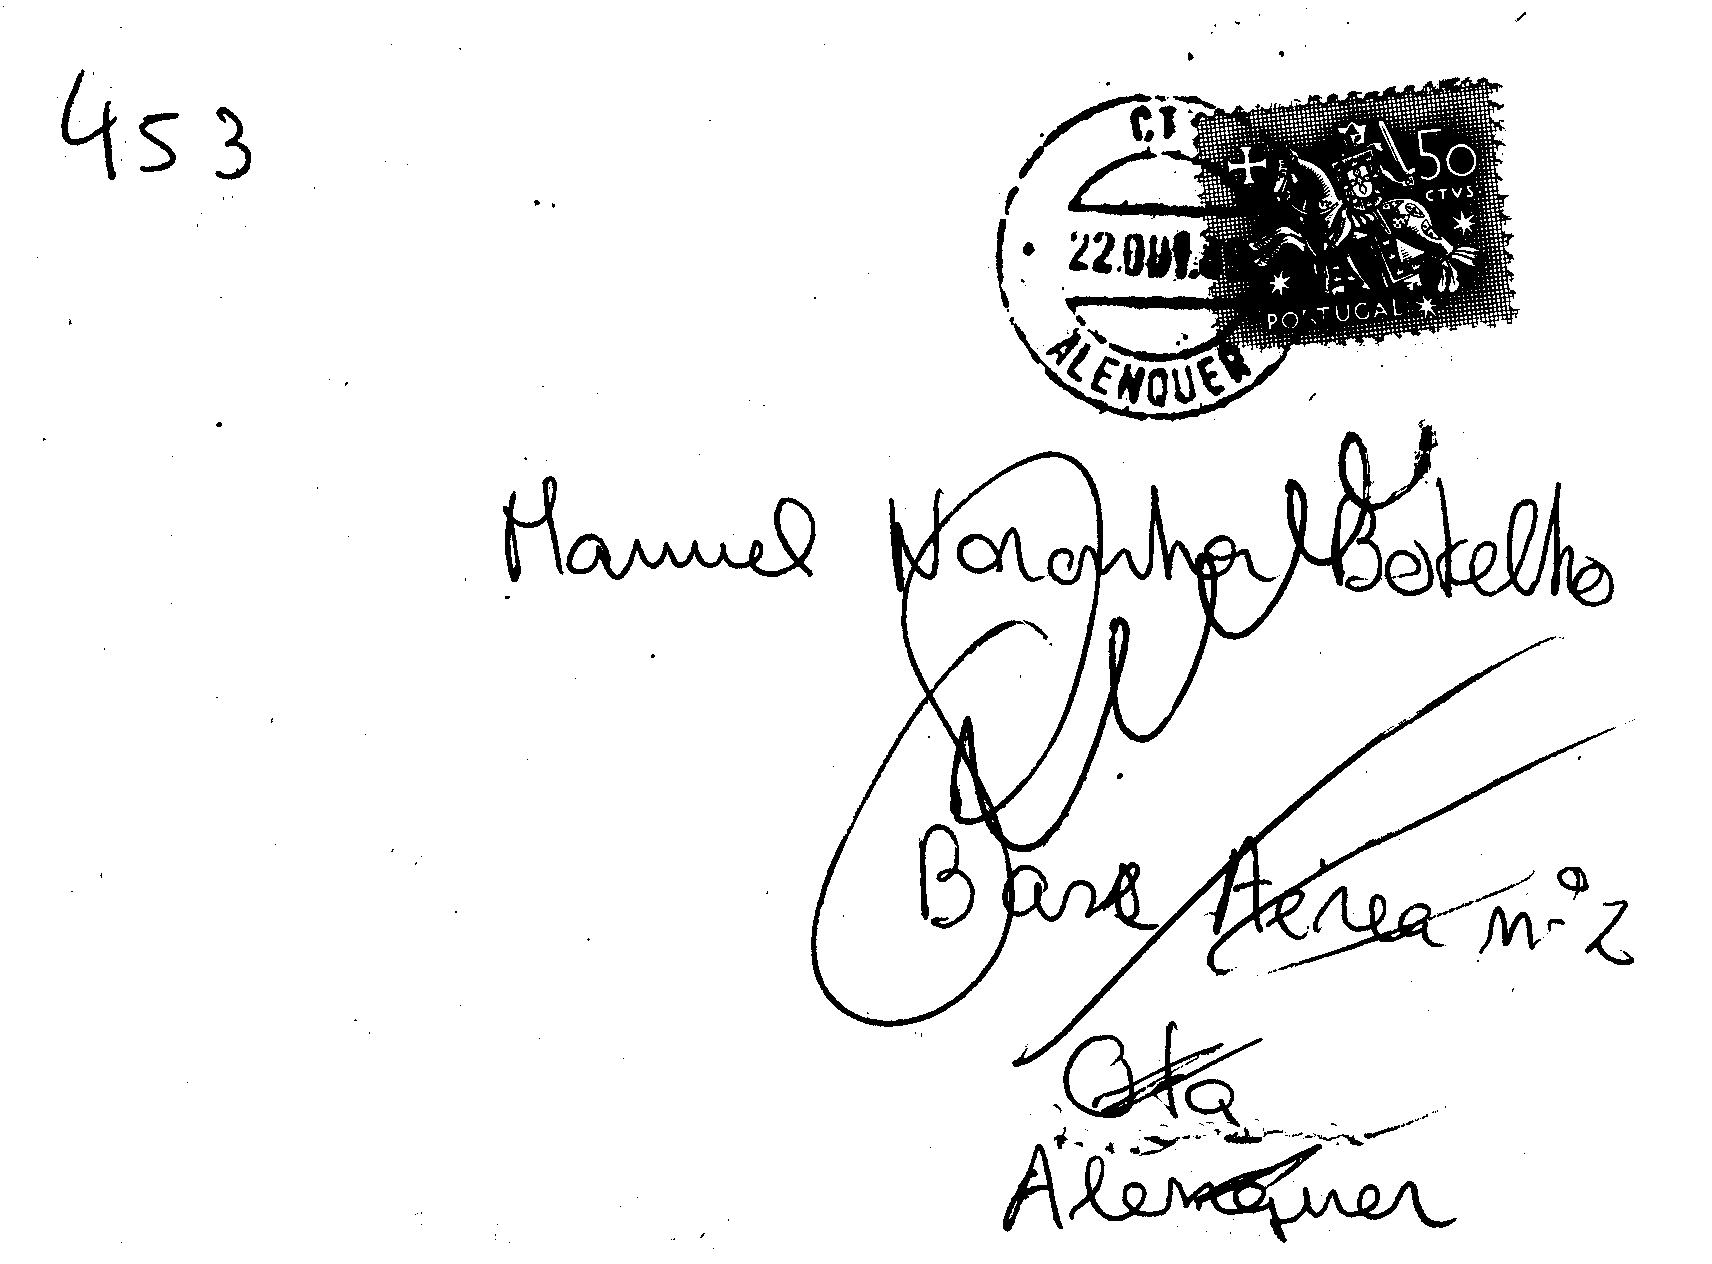 453
CT
50
CTVS
22.OUT.
PORTUGAL
ALENQUER
Manuel Noronha Botelho
Base Aérea nº 2
Ota
Alenquer